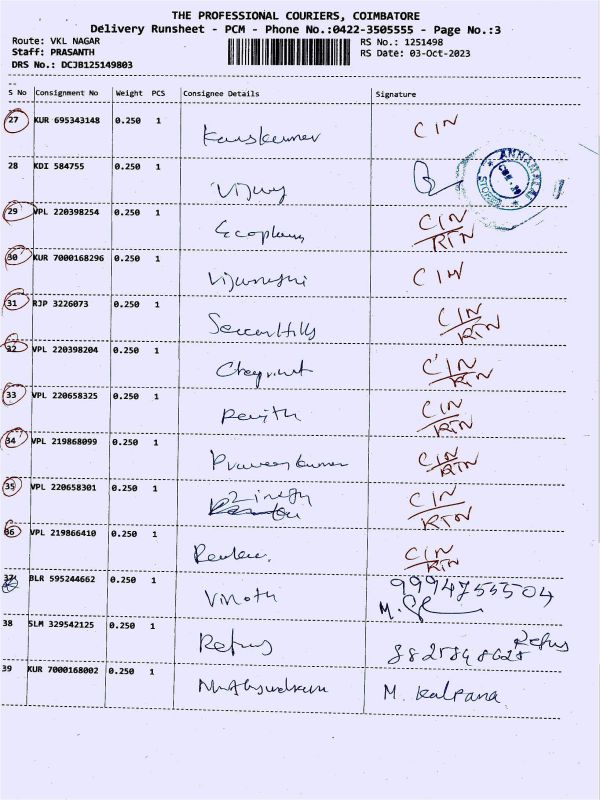 THE PROFESSIONAL COURIERS, COIMBATORE
Delivery Runsheet - PCM - Phone No.:0422-3505555 - Page No.:3
Route: VKL NAGAR RS No.: 1251498
Staff: PRASANTH RS Date: 03-Oct-2023
DRS No.: DCJB125149803
S No Consignment No Weight PCS Consignee Details Signature
27 KUR 695343148 0.250 1 CIN
28 KDI 584755 0.250 1 Vijay
ANNAMALAI
STORES
29 VPL 220398254 0.250 1 CIN
RTN
30 KUR 7000168296 0.250 1 CIN
31 RJP 3226073 0.250 1 CIN
RTN
32 VPL 220398204 0.250 1 CIN
RTN
33 VPL 220658325 0.250 1 CIN
RTN
34 VPL 219868099 0.250 1 Praveenkumar CIN
RTN
35 VPL 220658301 0.250 1 CIN
RTN
36 VPL 219866410 0.250 1 CIN
RTN
37 BLR 595244662 0.250 1 Vinoth 9994755504
M.
38 SLM 329542125 1 Refus Refus
39 KUR 7000168002 0.250 1 M. Kalpana